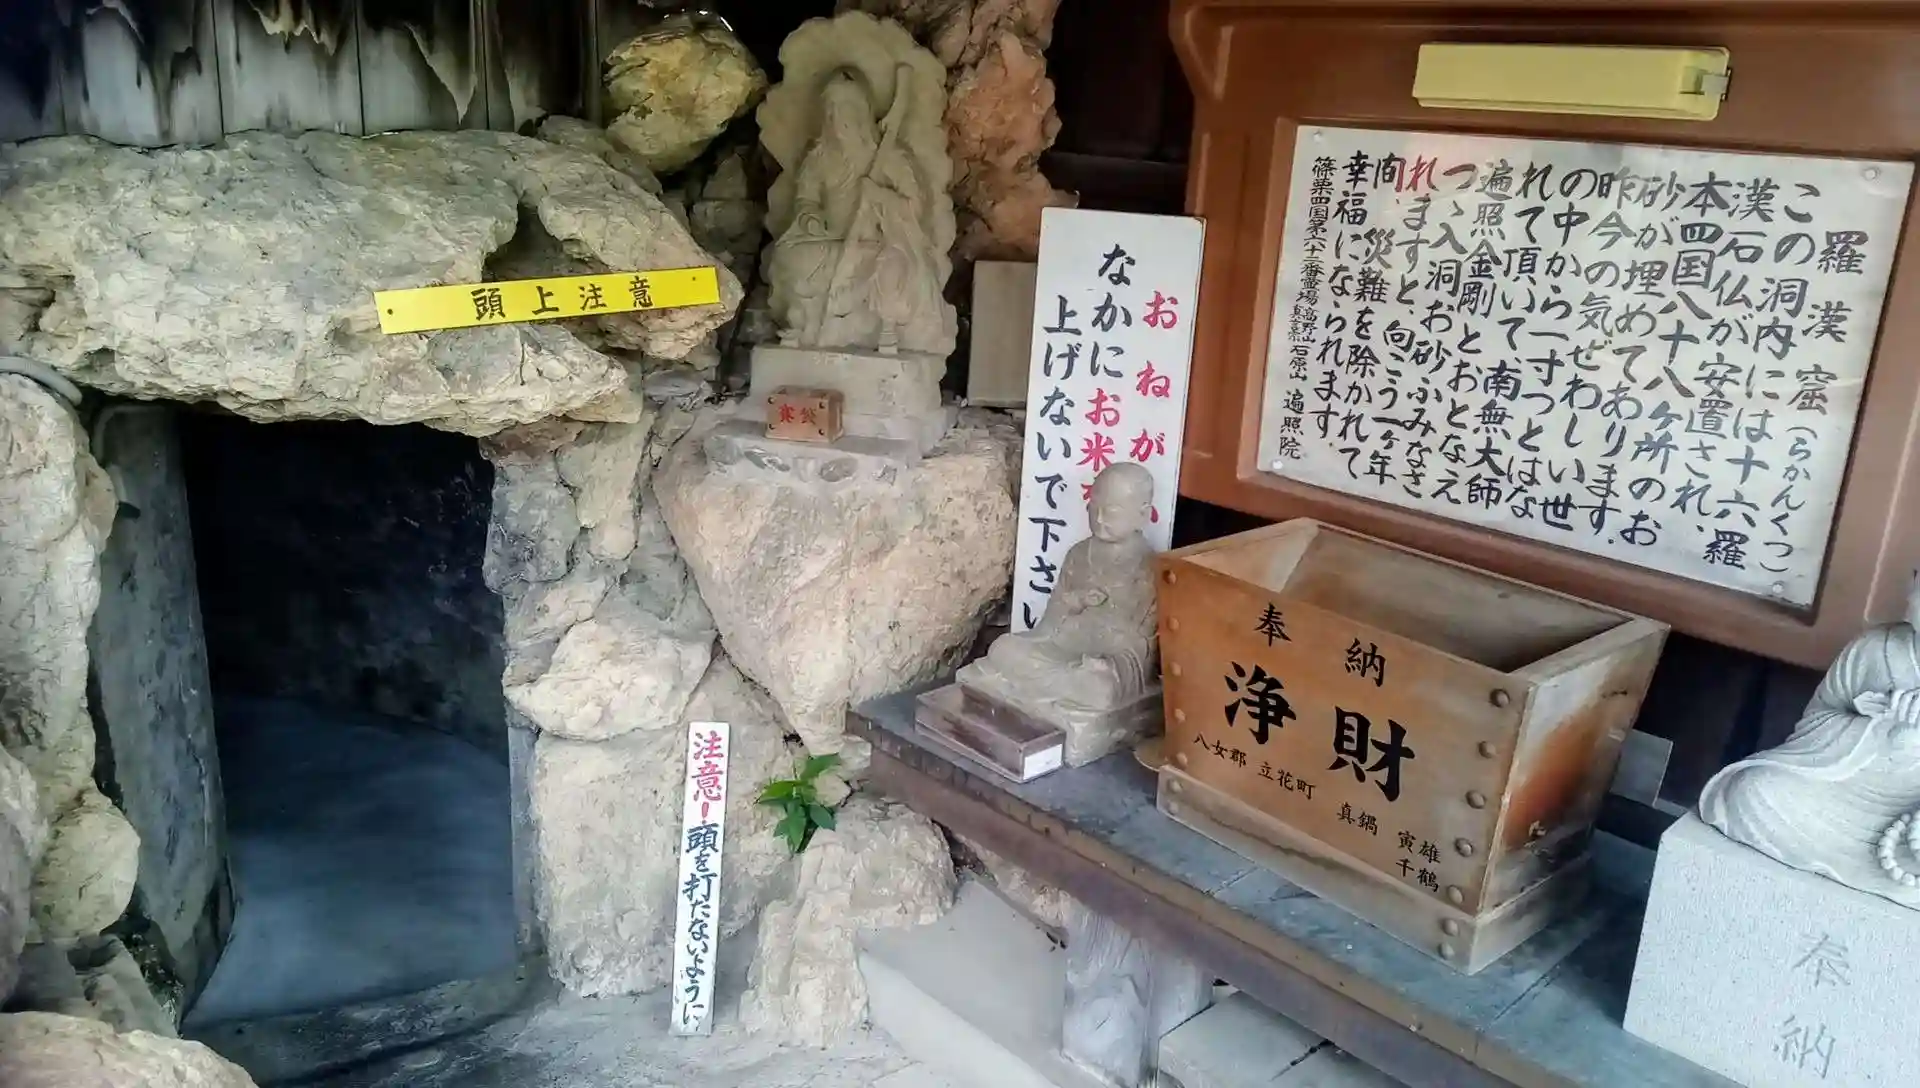 頭上注意
賽銭
注意!頭を打たないように
おねがい
なかにお米を
上げないで下さい
羅漢窟(らかんくつ)
この洞内には十六羅
漢石仏が安置され、
本四国八十八ヶ所のお
砂が埋めてあります.
昨今の気ぜわしい世
の中から一寸っとはな
れて頂いて、南無大師
遍照金剛ととおとなえ
つゝ入洞お砂ふみなさ
れますと、向こう一ヶ年
間、災難を除かれて
幸福になられます.
篠栗四国第六十二番霊場高野山真言宗石原山 遍照院
奉納
浄財
八女郡 立花町
真鍋 寅雄
千鶴
奉納